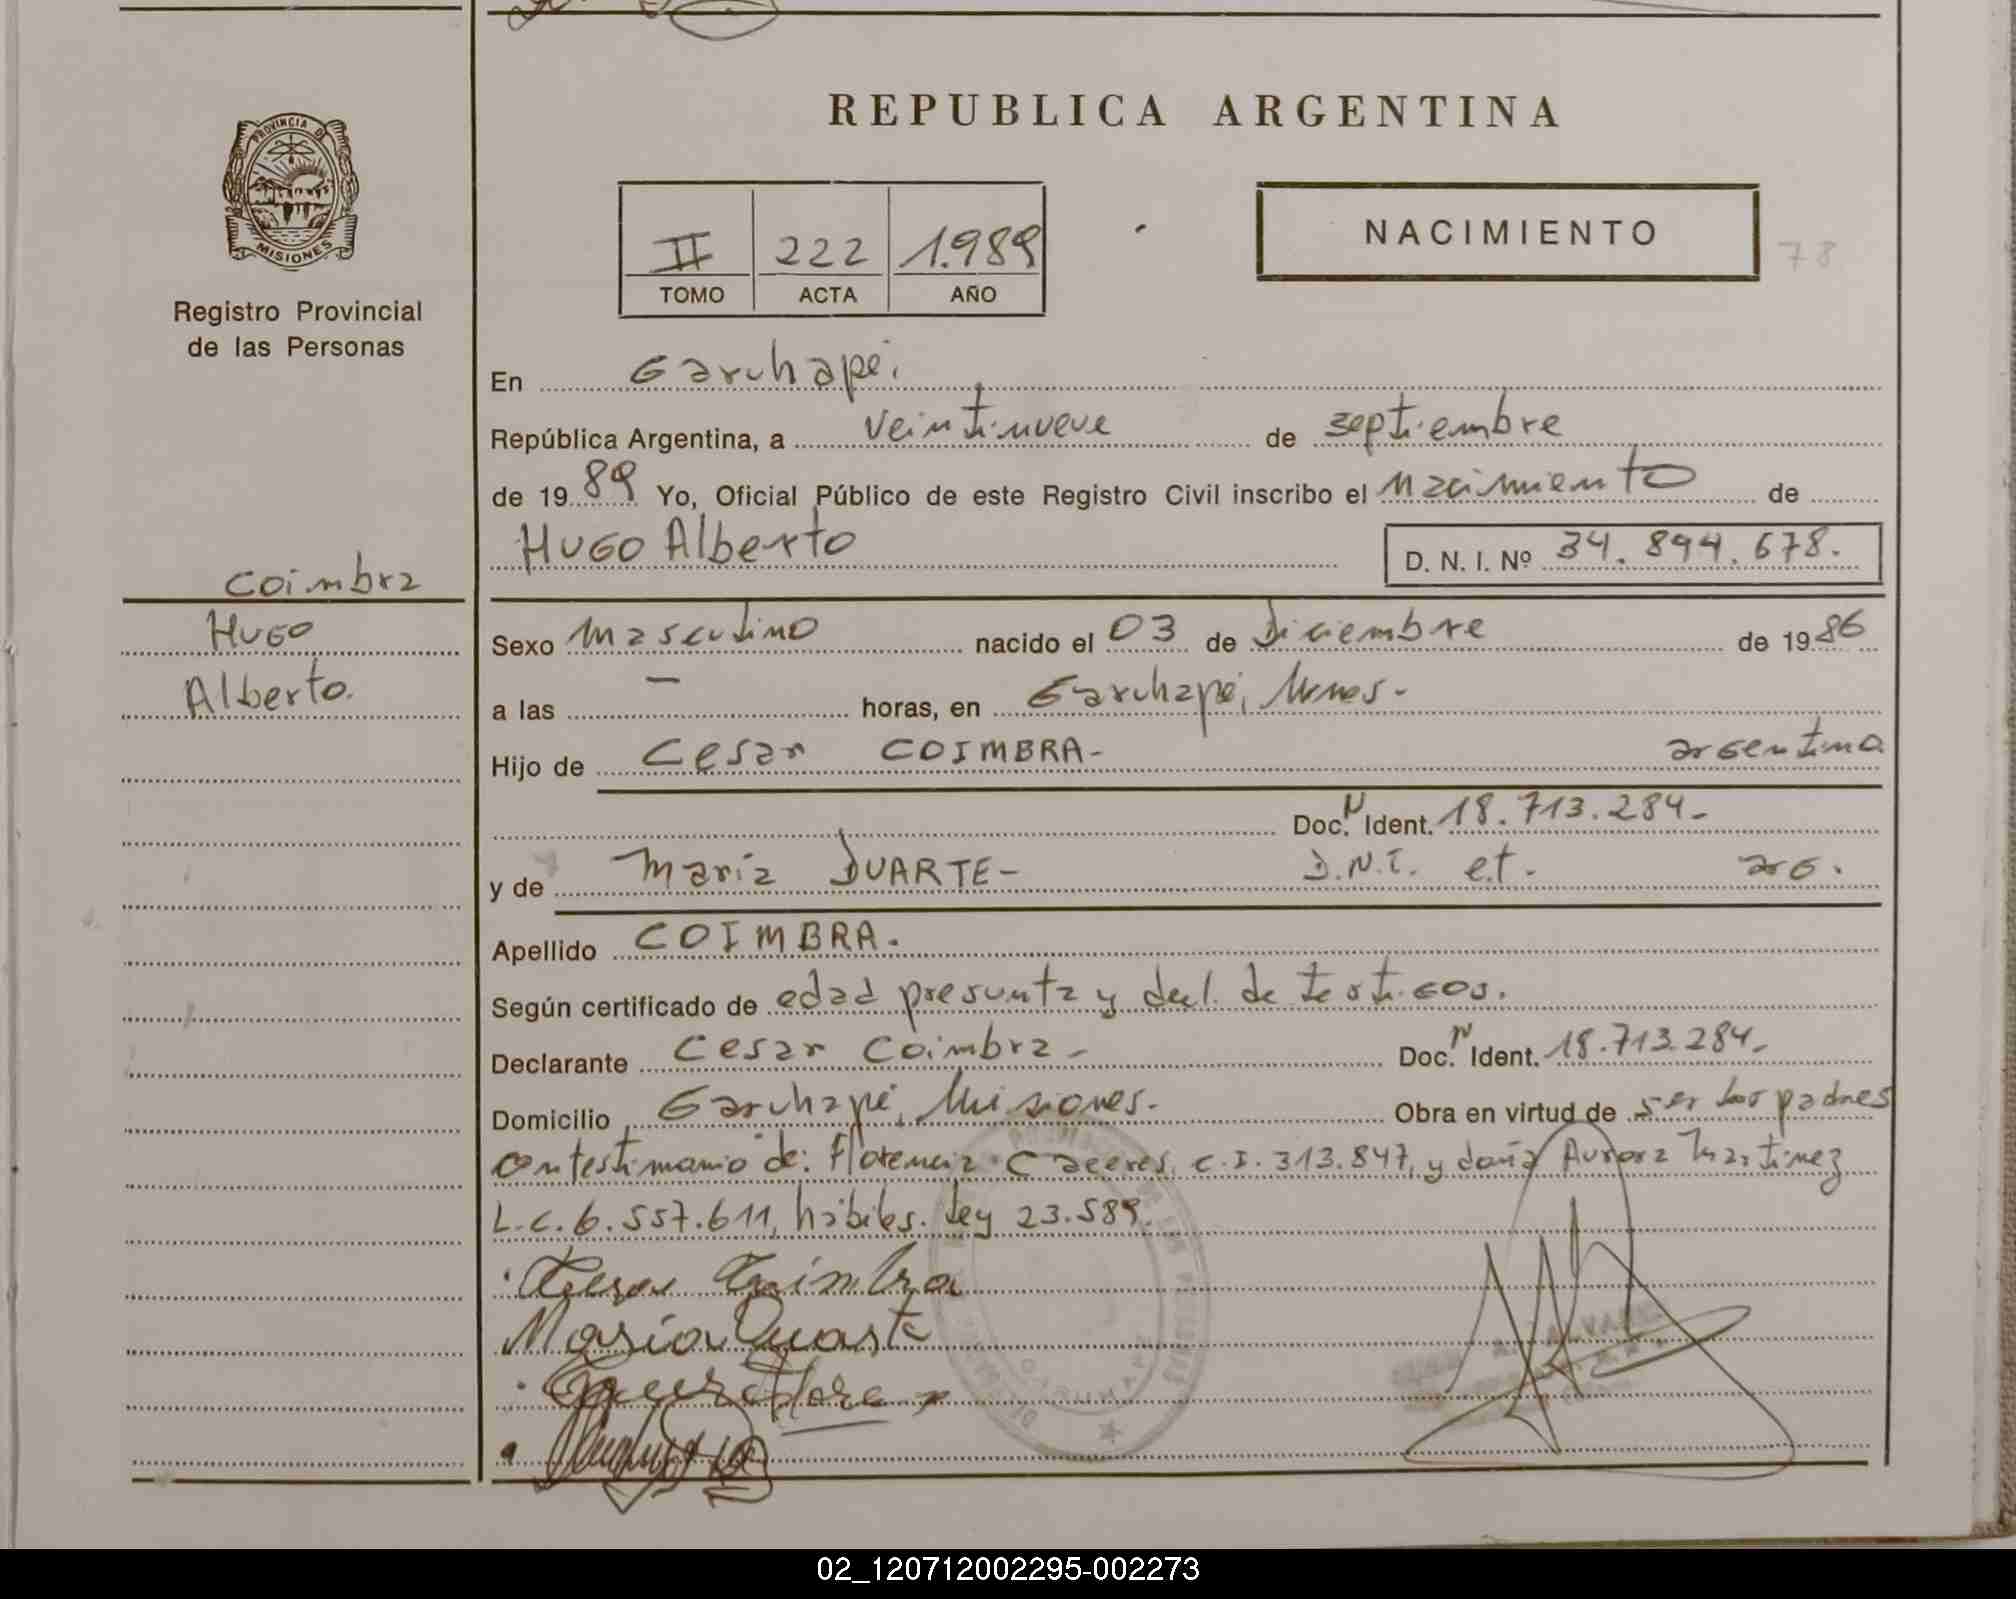 REPUBLICA ARGENTINA
PROVINCIA D
MISIONES
Registro Provincial
de las Personas
II 222 1.989
TOMO ACTA AÑO
NACIMIENTO
78
En Garuhapé,
República Argentina, a veintinueve de septiembre
de 1989 Yo, Oficial Público de este Registro Civil inscribo el nacimiento de
HUGO Alberto D. N. I. Nº 34.894.678.
Coimbra
Hugo
Alberto.
Sexo masculino nacido el 03 de Diciembre de 1986
a las — horas, en Garuhapé, Mnes-
Hijo de Cesar COIMBRA- argentino.
Doc. N Ident. 18.713.284-
y de María DUARTE- D.N.I. e.t. arg.
Apellido COIMBRA.
Según certificado de edad presunta y decl. de testigos.
Declarante Cesar Coimbra- Doc. N Ident. 18.713.284-
Domicilio Garuhapé, Misiones- Obra en virtud de ser los padres
con testimonio de: Florencia Caceres, C.I. 313.847, y doña Aurora Martinez
L.C. 6.557.611, hábiles. Ley 23.589.
Cesar Coimbra
Maria Duarte
ALVAREZ
02_120712002295-002273